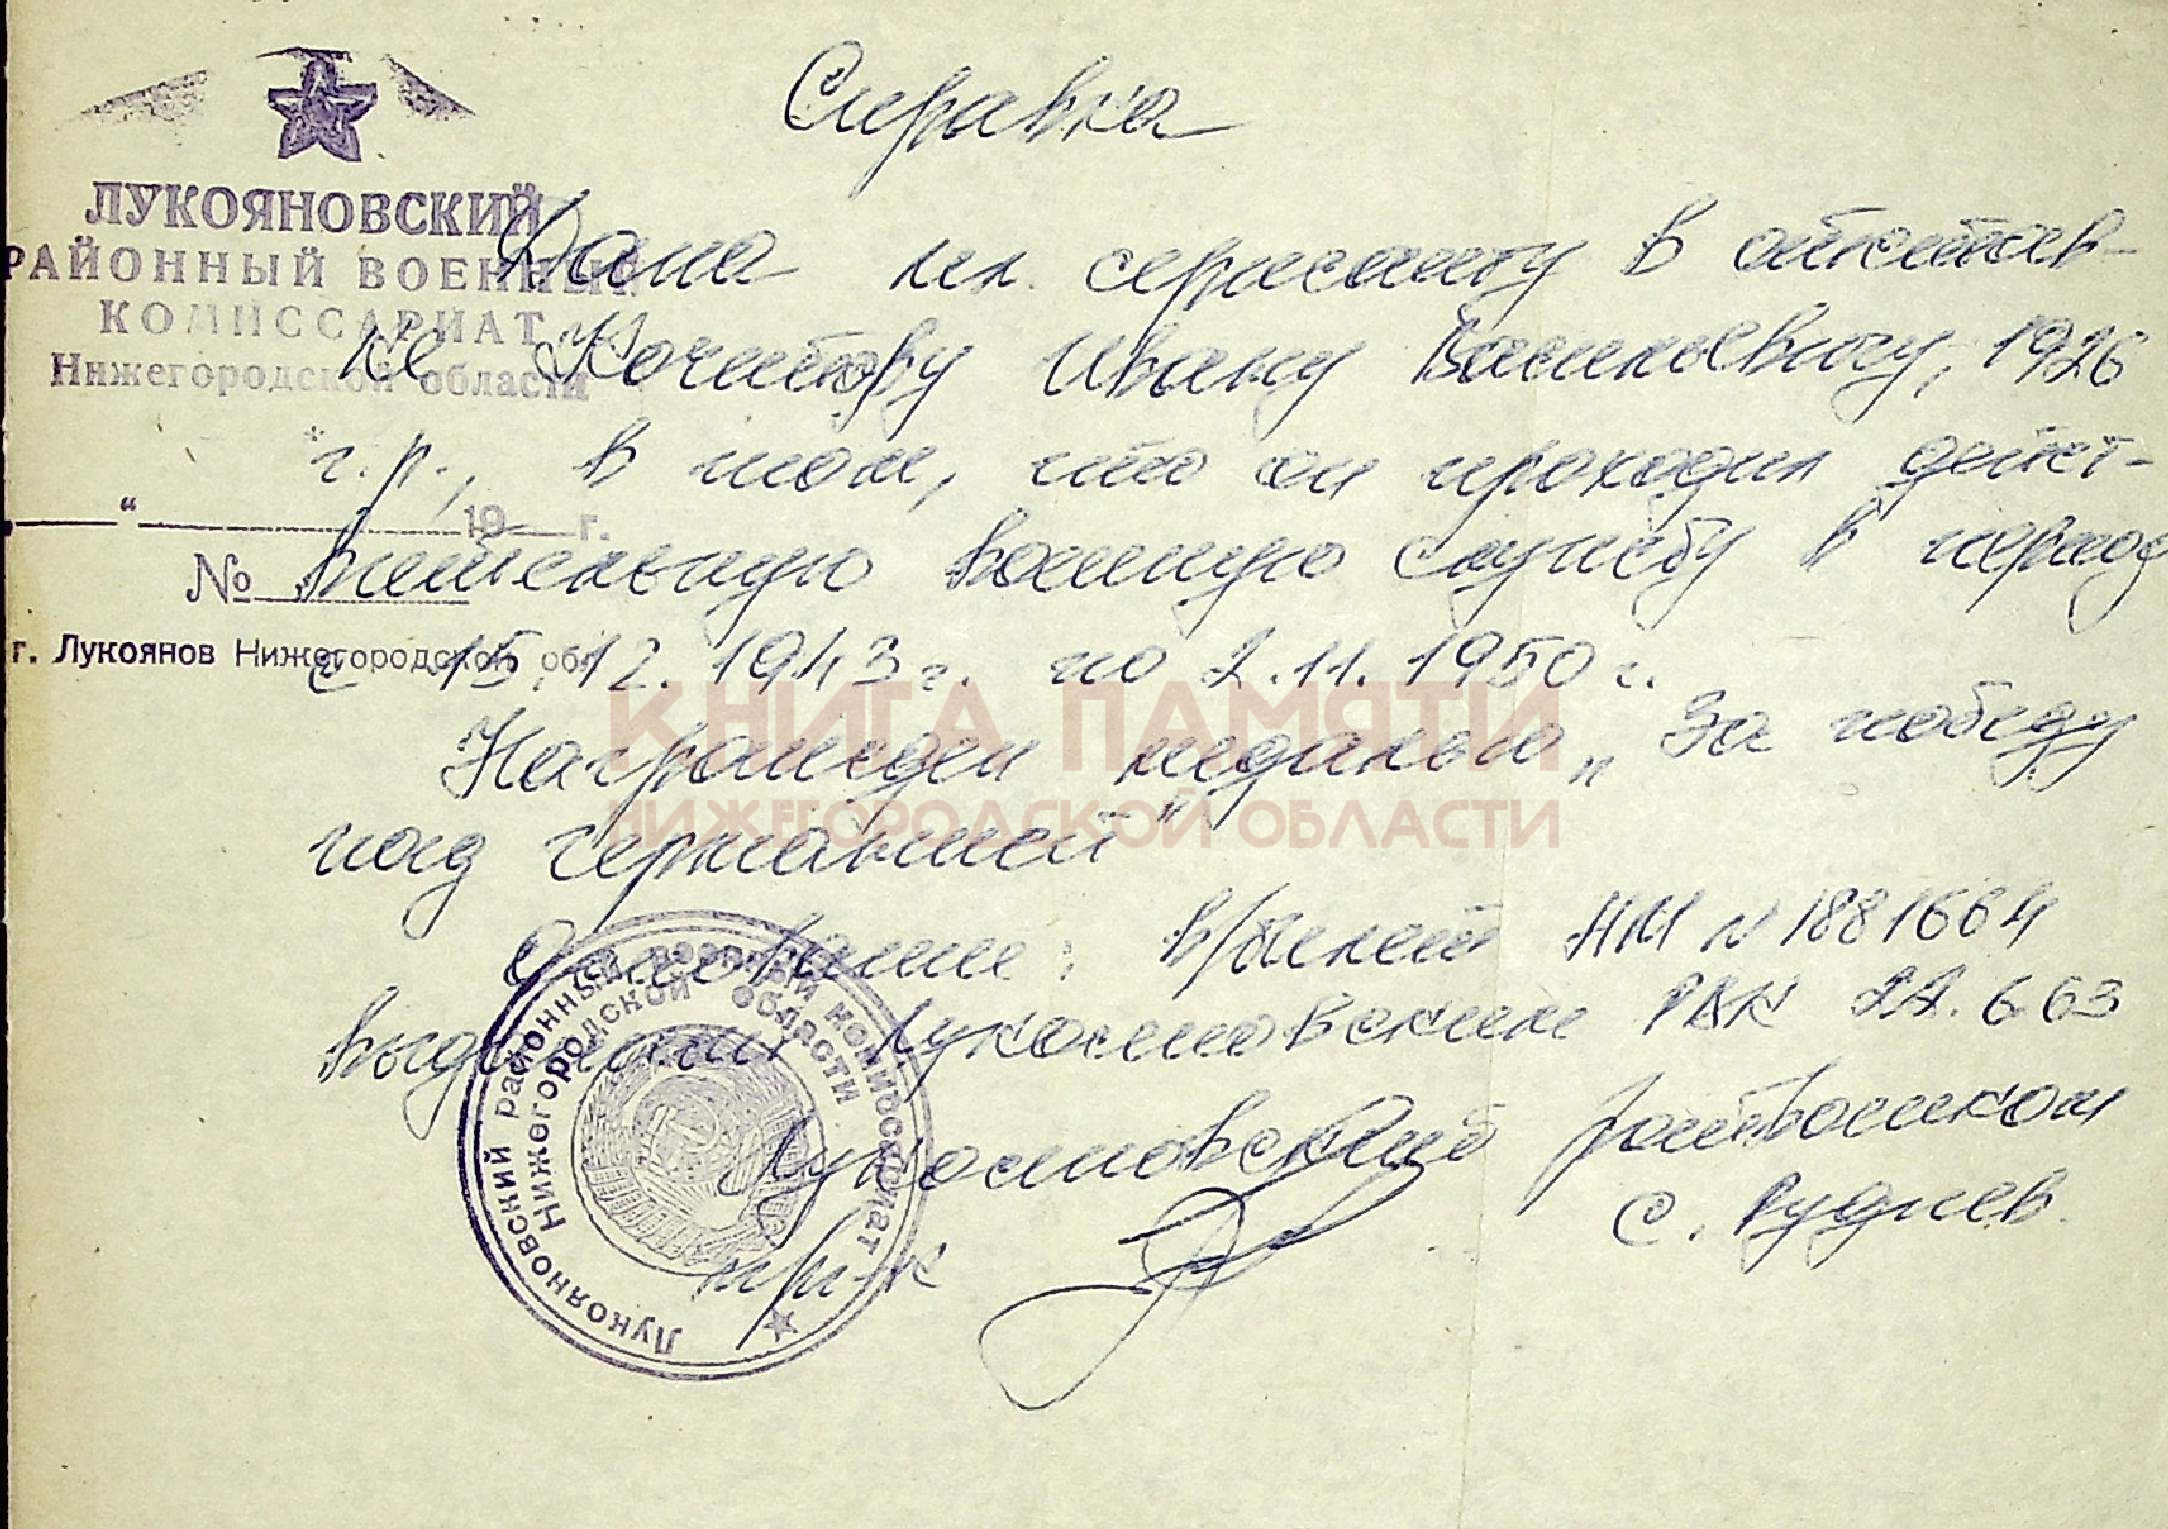 Справка
ЛУКОЯНОВСКИЙ
РАЙОННЫЙ ВОЕННЫЙ
КОМИССАРИАТ
Нижегородской области
„ “ 19 г.
№
г. Лукоянов Нижегородской обл
Дана мл. сержанту в отстав-
ке Кочетову Ивану Васильевичу, 1926
г.р., в том, что он проходил дейст-
вительную военную службу в период
с 15.12.1943 г. по 2.11.1950 г.
Награжден медалью „За победу
над Германией"
КНИГА ПАМЯТИ
НИЖЕГОРОДСКОЙ ОБЛАСТИ
Основание: в/билет НИ № 1881664
выданный Лукояновским РВК 22.6.63
Лукояновский райвоенком
п/п-к С. Руднев
Лукояновский районный военный комиссариат
Нижегородской области